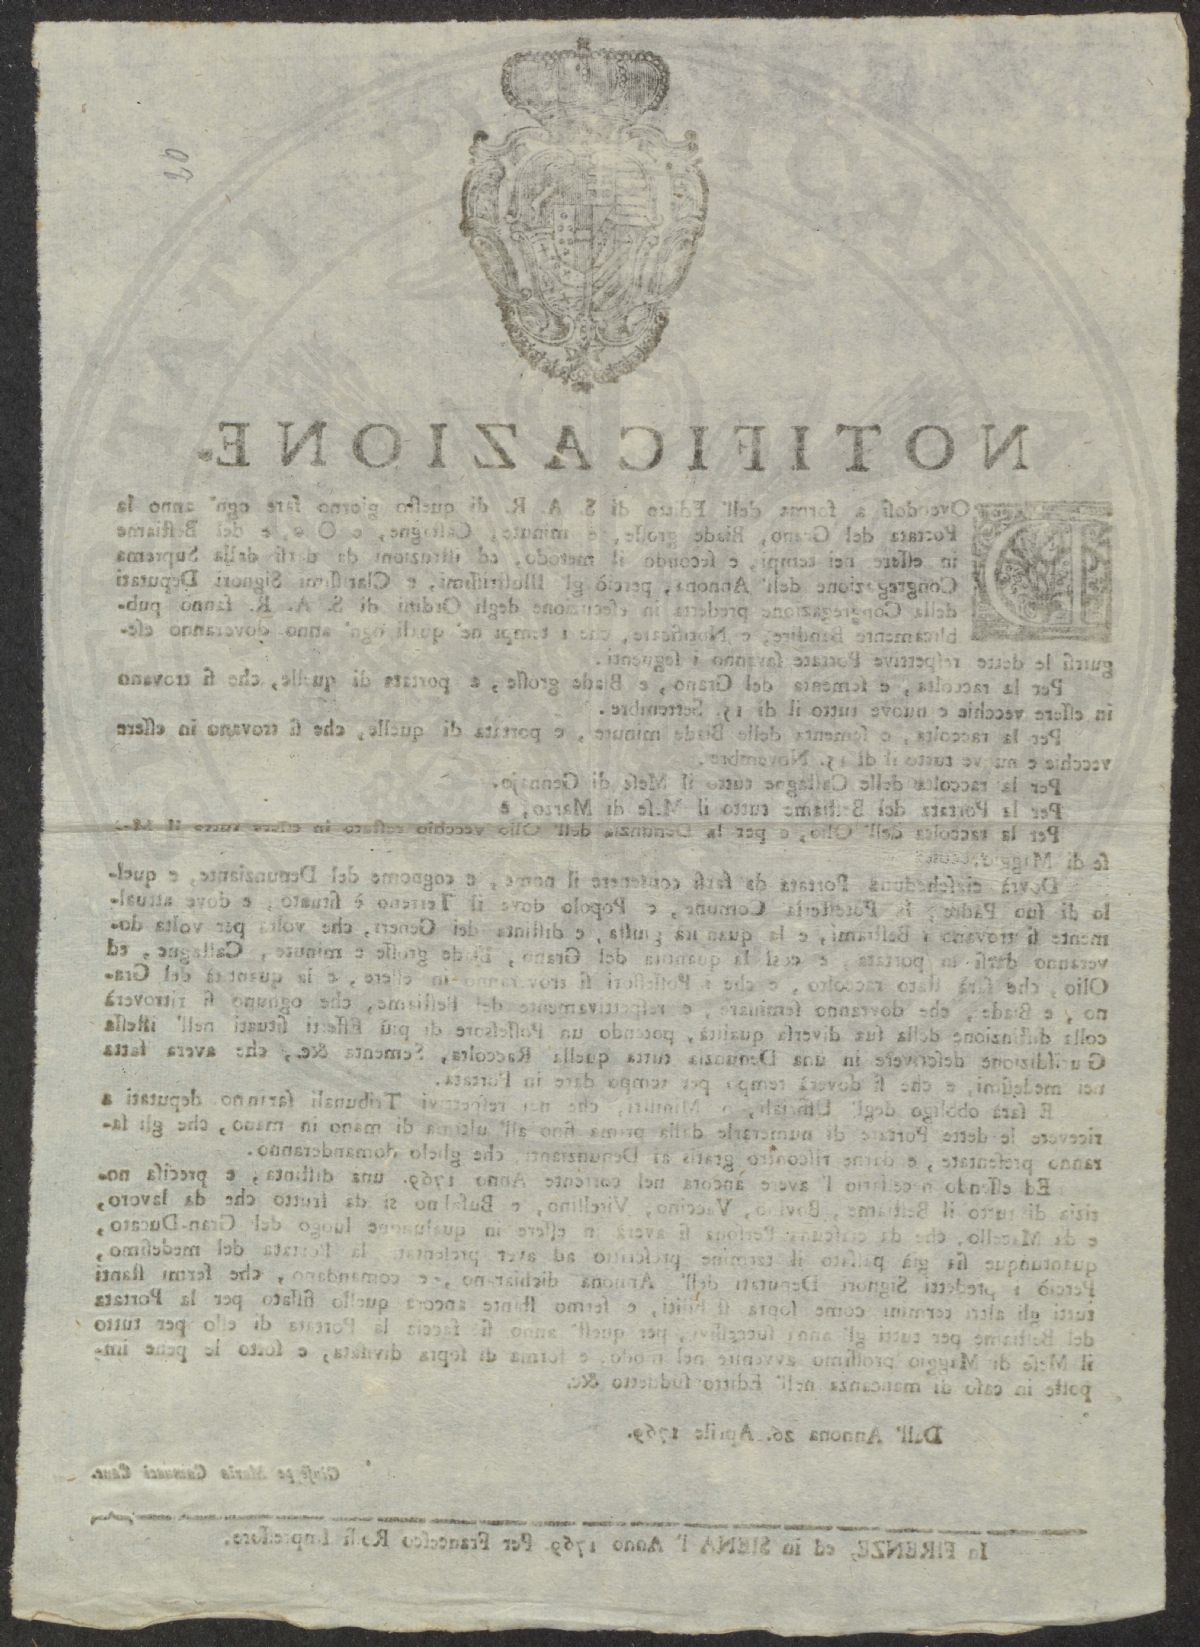 20
NOTIFICAZIONE.
DOvendosi a forma dell' Editto di S. A. R. di questo giorno fare ogn' anno la
Portata del Grano, Biade grosse, e minute, Castagne, e Olio, e del Bestiame
in essere nei tempi, e secondo il metodo, ed istruzioni da darsi dalla Suprema
Congregazione dell' Annona, perciò gl' Illustrissimi, e Clarissimi Signori Deputati
della Congregazione predetta in esecuzione degli Ordini di S. A. R. fanno pub-
blicamente Bandire, e Notificare, che i tempi ne' quali ogn' anno doveranno ese-
guirsi le dette respettive Portate saranno i seguenti.
Per la raccolta, e sementa del Grano, e Biade grosse, e portata di quelle, che si trovano
in essere vecchie e nuove tutto il dì 15. Settembre.
Per la raccolta, e sementa delle Biade minute, e portata di quelle, che si trovano in essere
vecchie e nuove tutto il dì 15. Novembre.
Per la raccolta delle Castagne tutto il Mese di Gennajo.
Per la Portata del Bestiame tutto il Mese di Marzo, e
Per la raccolta dell' Olio, e per la Denunzia dell' Olio vecchio restato in essere tutto il Me-
se di Maggio.
Dovrà ciascheduna Portata da farsi contenere il nome, e cognome del Denunziante, e quel-
lo di suo Padre, la Potesteria Comune, e Popolo dove il Terreno è situato, e dove attual-
mente si trovano i Bestiami, e la quantità giusta, e distinta dei Generi, che volta per volta do-
veranno darsi in portata e così la quantità del Grano, Biade grosse e minute, Castagne, ed
Olio, che sarà stato raccolto, e che i Possessori si troveranno in essere, e la quantità del Gra-
no, e Biade, che dovranno seminare, e respettivamente del Bestiame, che ognuno si ritroverà
colla distinzione della sua diversa qualità, potendo un Possessore di più Effetti situati nell' istessa
Giurisdizione descrivere in una Denunzia tutta quella Raccolta, Sementa &c., che avera fatta
nei medesimi, e che si doverà tempo per tempo dare in Portata.
E sarà obbligo degl' Ufficiali, o Ministri, che nei respettivi Tribunali saranno deputati a
ricevere le dette Portate di numerarle dalla prima fino all' ultima di mano in mano, che gli sa-
ranno presentate, e darne riscontro gratis ai Denunzianti, che glielo domanderanno.
Ed essendo necessario l' avere ancora nel corrente Anno 1769. una distinta, e precisa no-
tizia di tutto il Bestiame, Bovino, Vaccino, Vitellino, e Bufalino sì da frutto che da lavoro,
e da Macello, che da ciascuna Persona si averà in essere in qualunque luogo del Gran-Ducato,
quantunque sia già passato il termine prescritto ad aver presentata la Portata del medesimo,
Perciò i predetti Signori Deputati dell' Annona dichiarano, e comandano, che fermi stanti
tutti gli altri termini come sopra stabiliti, e fermo stante ancora quello fissato per la Portata
del Bestiame per tutti gli anni successivi, per quest' anno si faccia la Portata di esso per tutto
il Mese di Maggio prossimo avvenire nel modo, e forma di sopra divisata, e sotto le pene im-
poste in caso di mancanza nell' Editto suddetto &c.
Dall' Annona 26. Aprile 1769.
Giuseppe Maria Canc.
In FIRENZE, ed in SIENA l' Anno 1769. Per Francesco Rossi Impressore.